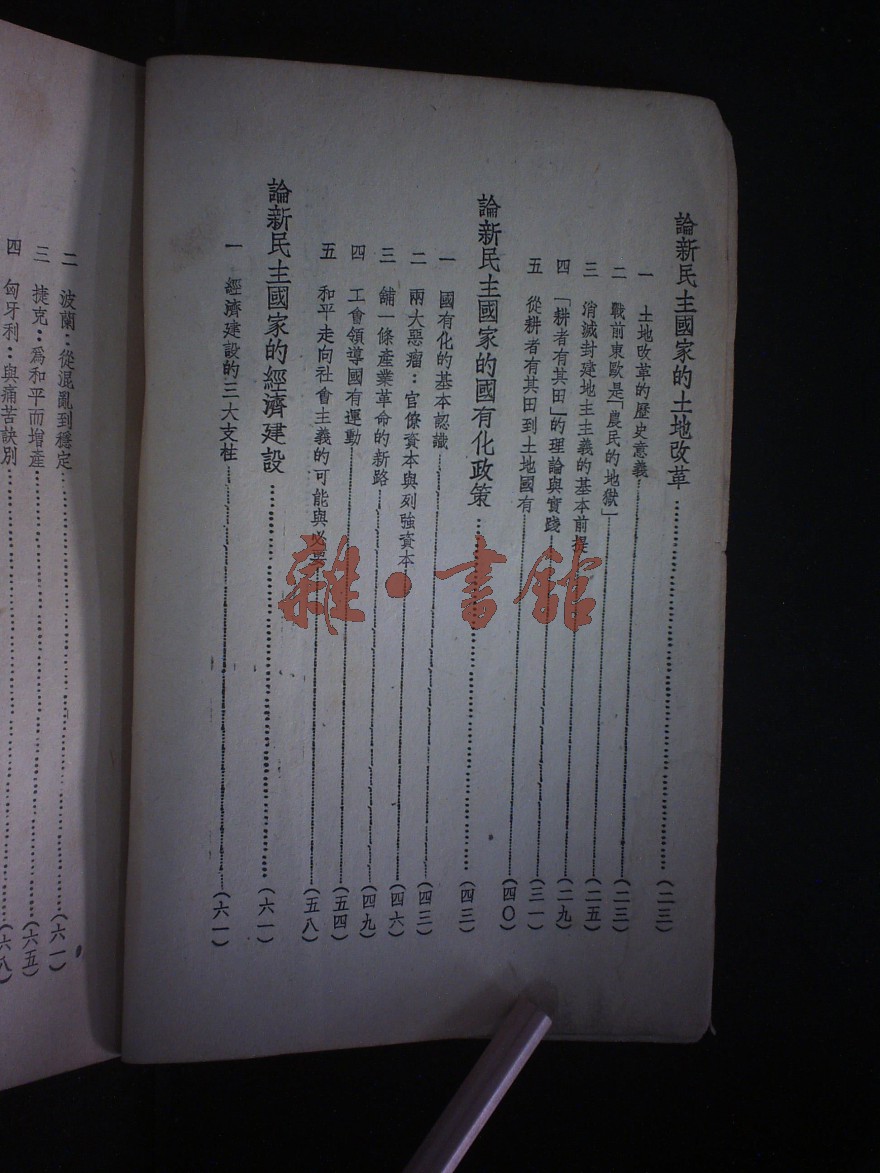 論新民主國家的土地改革……(二三)
一 土地改革的歷史意義……(二三)
二 戰前東歐是「農民的地獄」……(二五)
三 消滅封建地主主義的基本前提……(二九)
四 「耕者有其田」的理論與實踐……(三一)
五 從耕者有其田到土地國有……(四〇)
論新民主國家的國有化政策……(四三)
一 國有化的基本認識……(四三)
二 兩大惡瘤：官僚資本與列強資本……(四六)
三 舖一條產業革命的新路……(四九)
四 工會領導國有運動……(五四)
五 和平走向社會主義的可能與必要……(五八)
論新民主國家的經濟建設……(六一)
一 經濟建設的三大支柱……(六一)
二 波蘭：從混亂到穩定……(六一)
三 捷克：爲和平而增產……(六五)
四 匈牙利：與痛苦訣別……(六八)
雜·書館